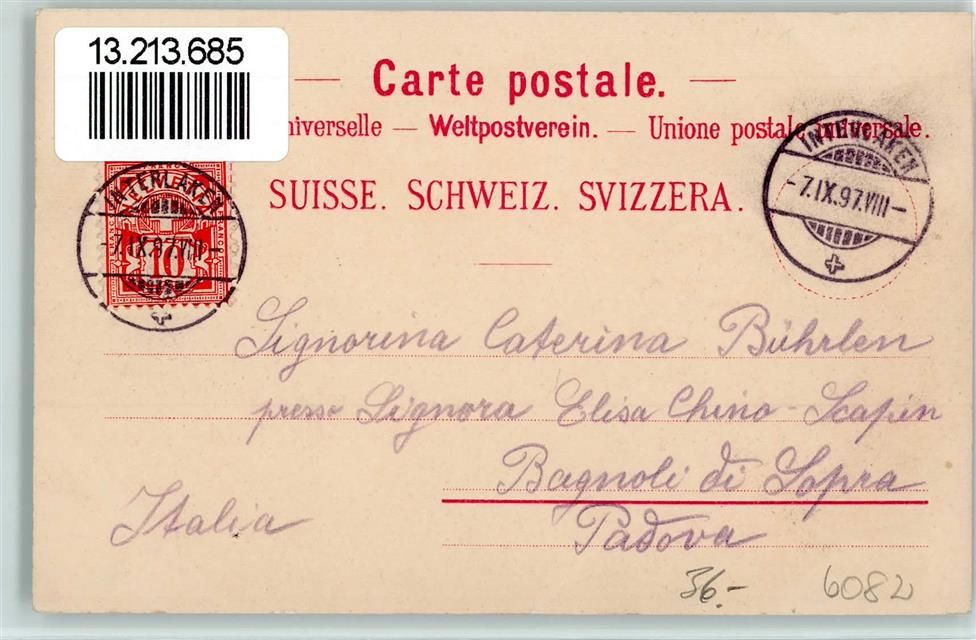 13.213.685
— Carte postale. —
universelle — Weltpostverein. — Unione postale universale.
SUISSE. SCHWEIZ. SVIZZERA.
INTERLAKEN
-7.IX.97.VIII-
10
INTERLAKEN
-7.IX.97.VIII-
Signorina Caterina Bührlen
presso Signora Elisa Chino-Scapin
Bagnoli di Sopra
Italia
Padova
36.-
6082